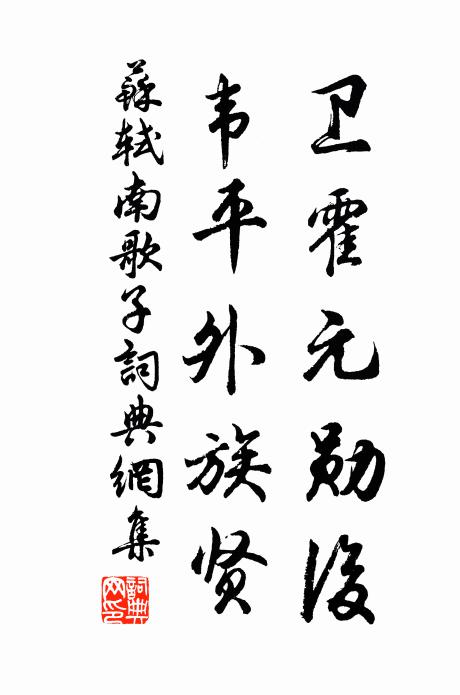 卫霍元勋後
韦平外族贤
蘇轼南歌子詞典網集
詞典网印